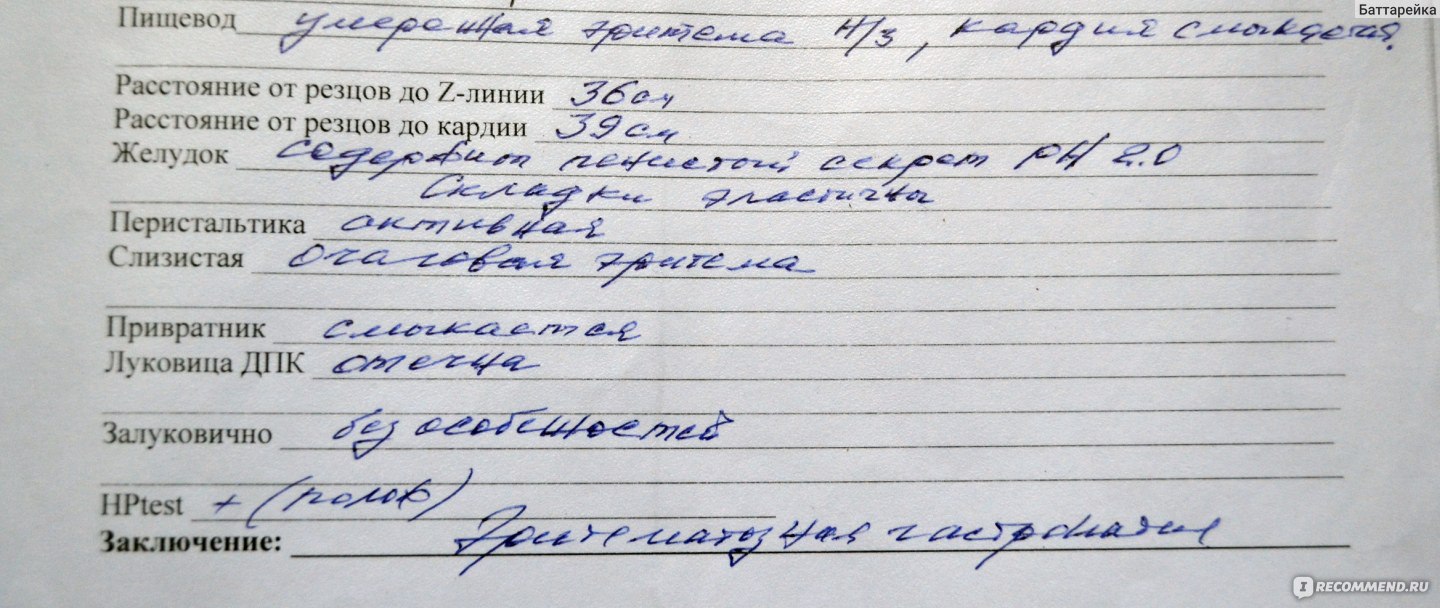 Баттарейка
Пищевод умеренная эритема н/з, кардия смыкается.
Расстояние от резцов до Z-линии 36см
Расстояние от резцов до кардии 39см
Желудок содержит пенистый секрет pH 2.0
складки эластичны
Перистальтика активная
Слизистая очаговая эритема
Привратник смыкается
Луковица ДПК отечна
Залуковично без особенностей
HPtest + (полож)
Заключение: Эритематозная гастропатия
I RECOMMEND.RU